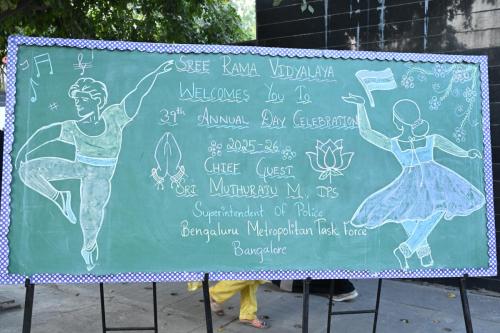 SREE RAMA VIDYALAYA
WELCOMES YOU TO
39th ANNUAL DAY CELEBRATION
2025-26
CHIEF GUEST
SRI MUTHURAJU M., IPS
Superintendent Of Police
Bengaluru Metropolitan Task Force
Bangalore